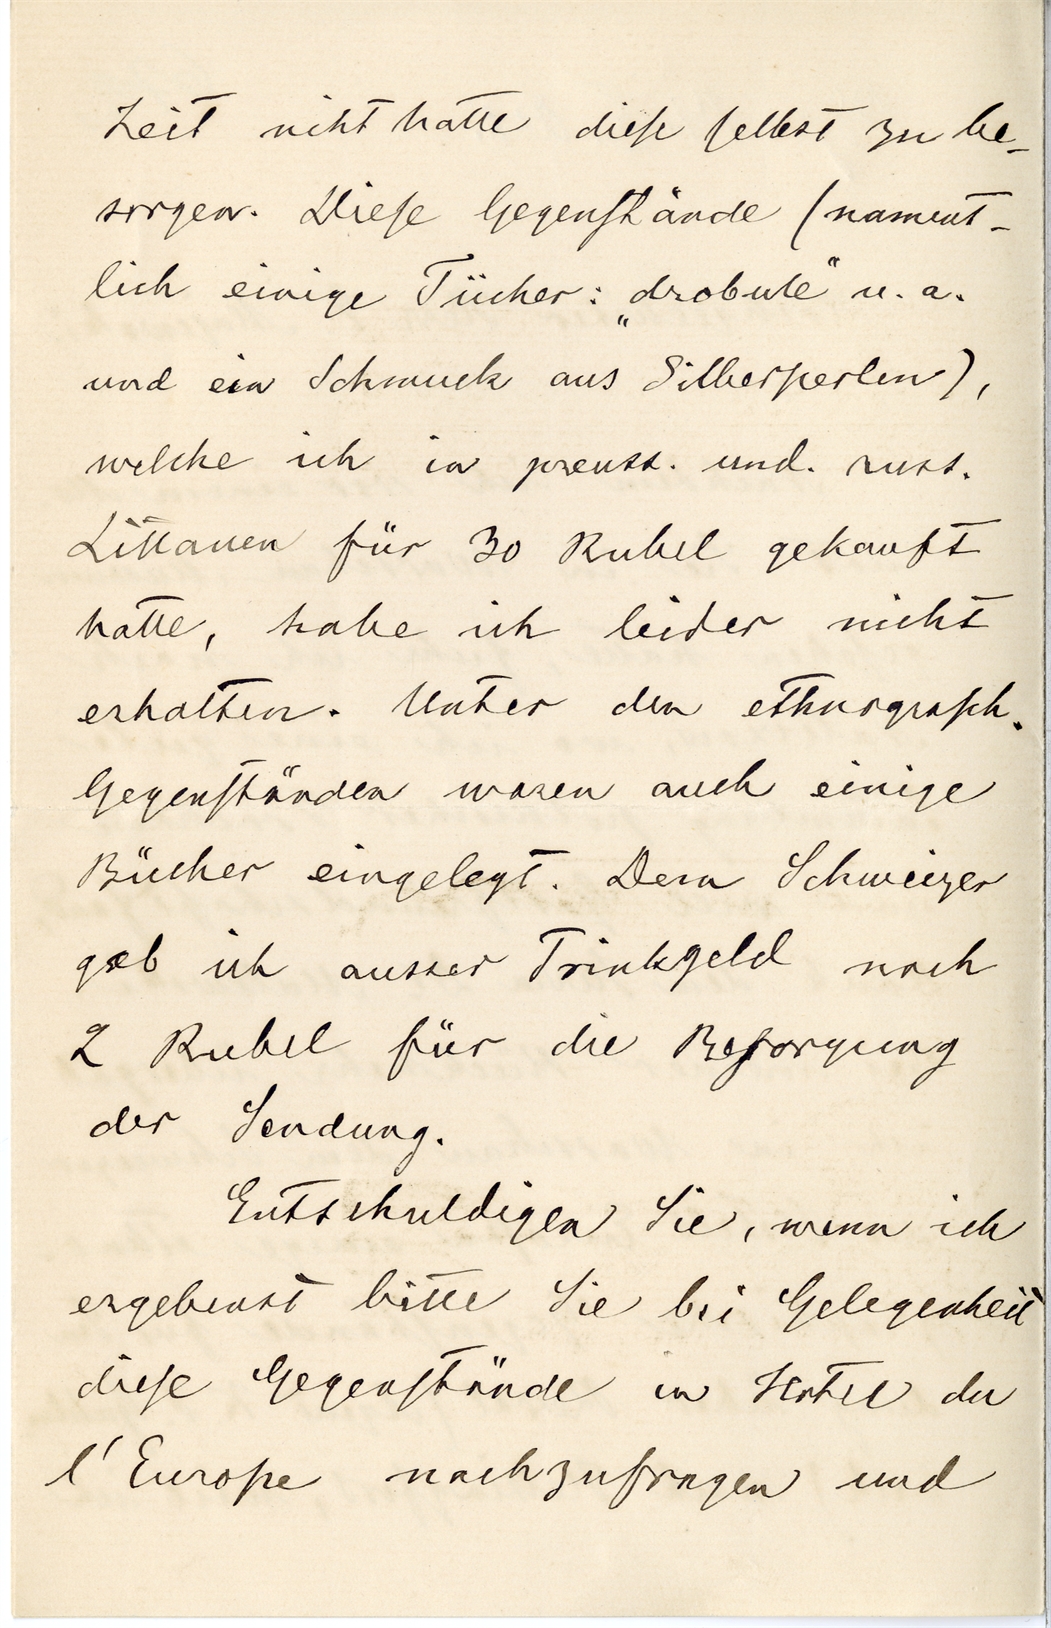 Zeit nicht hatte diese selbst zu be-
sorgen. Diese Gegenstände (nament-
lich einige Tücher: „drobule" u. a.
und ein Schmuck aus Silberperlen),
welche ich in preuss. und. russ.
Littauen für 30 Rubel gekauft
hatte, habe ich leider nicht
erhalten. Unter den ethnograph.
Gegenständen waren auch einige
Bücher eingelegt. Dem Schweizer
gab ich ausser Trinkgeld noch
2 Rubel für die Besorgung
der Sendung.
Entschuldigen Sie, wenn ich
ergebenst bitte Sie bei Gelegenheit
diese Gegenstände in Hotel de
l'Europe nachzufragen und